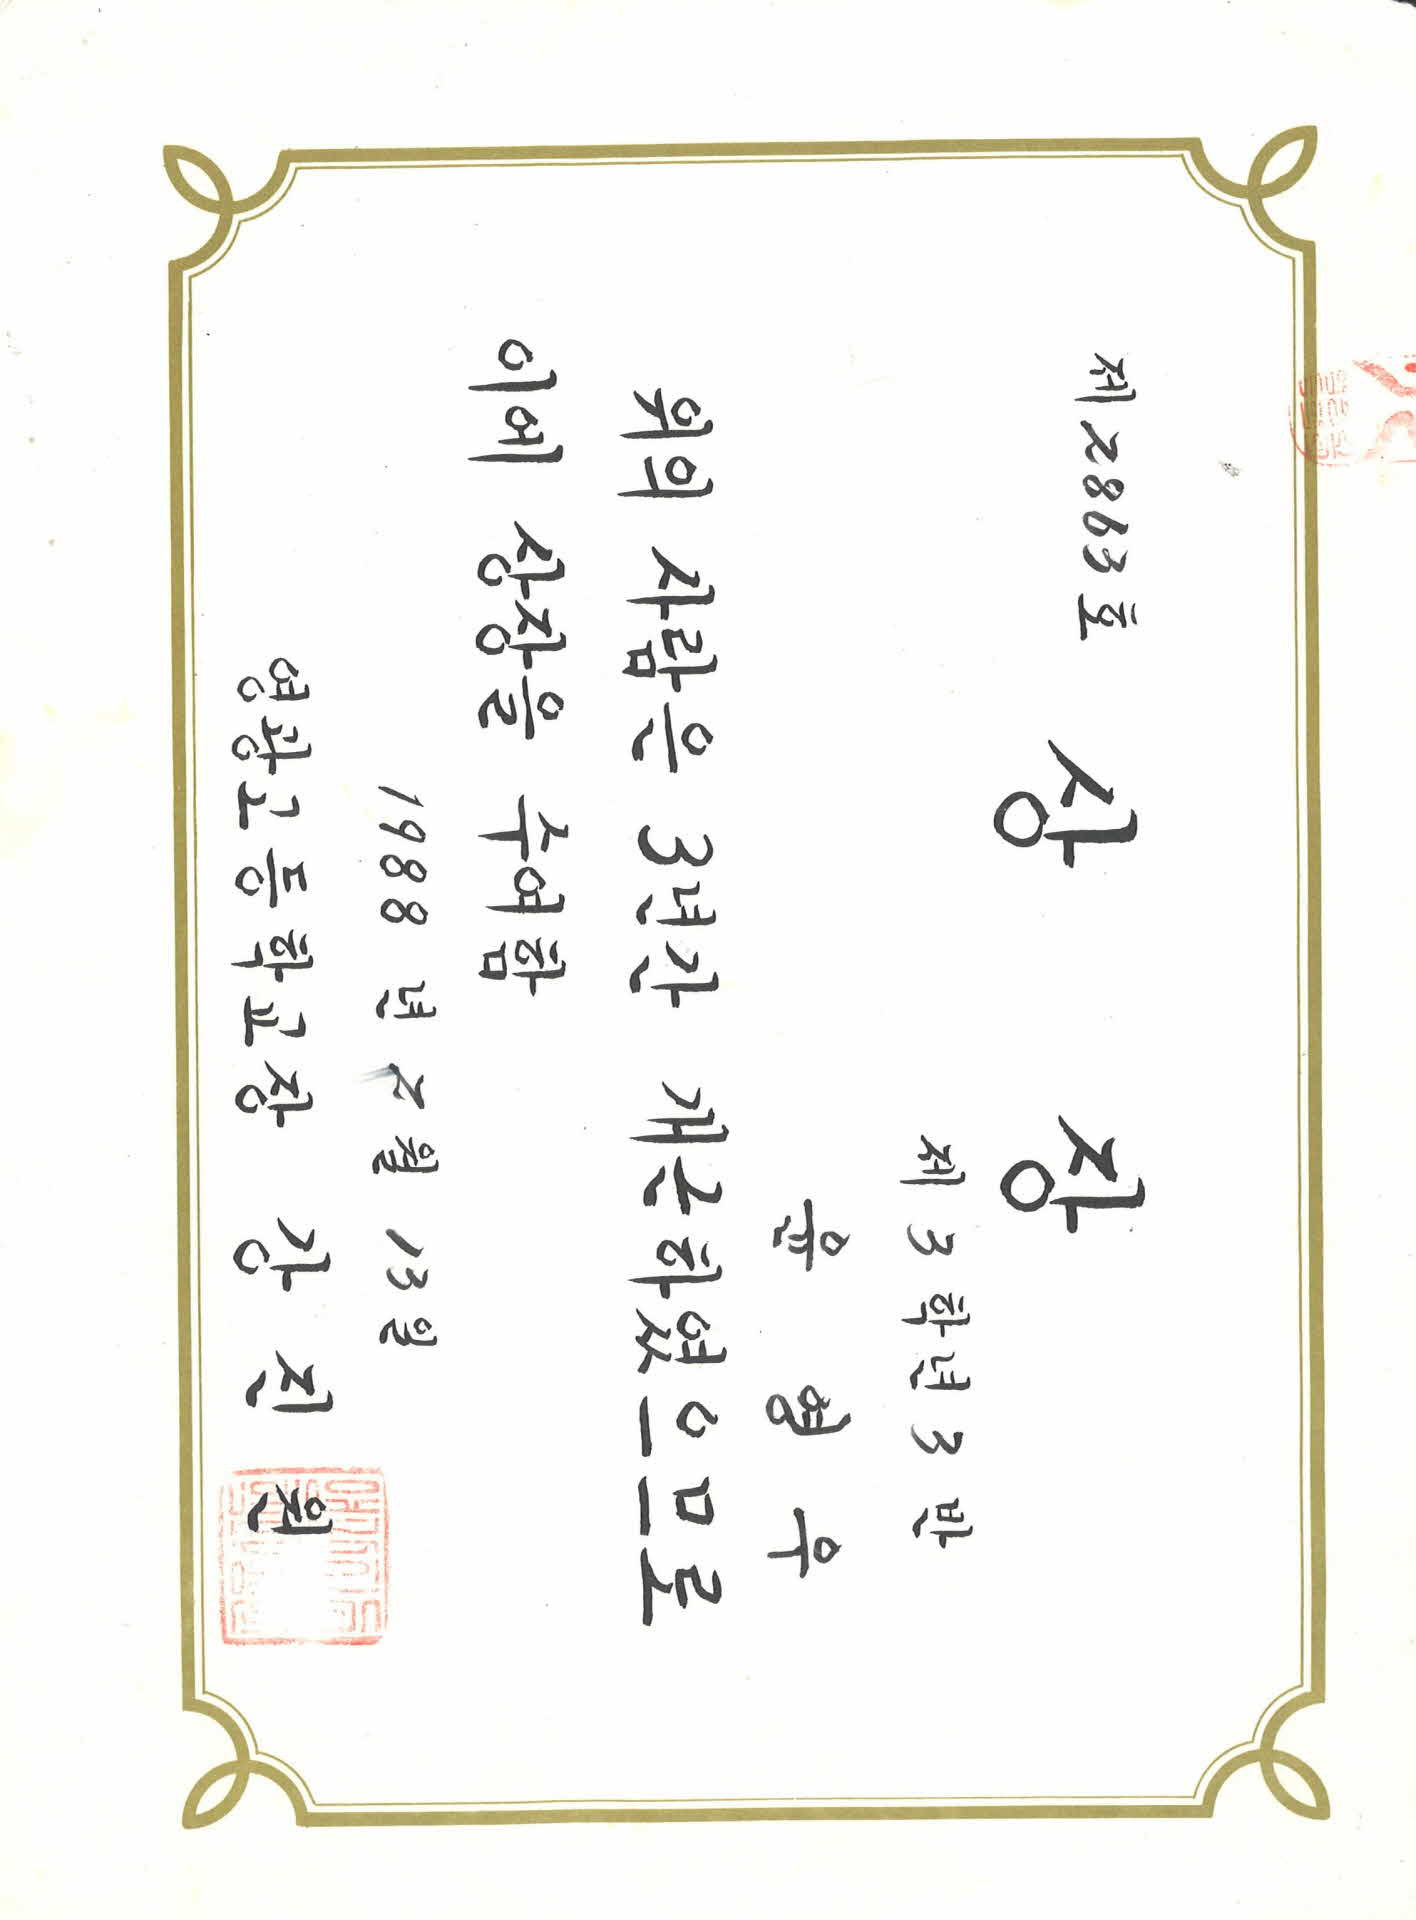 제2863호
상 장
제 3 학년 3 반
윤 형 우
위의 사람은 3년간 개근하였으므로
이에 상장을 수여함
1988 년 2월 13일
영광고등학교장 강 진 원